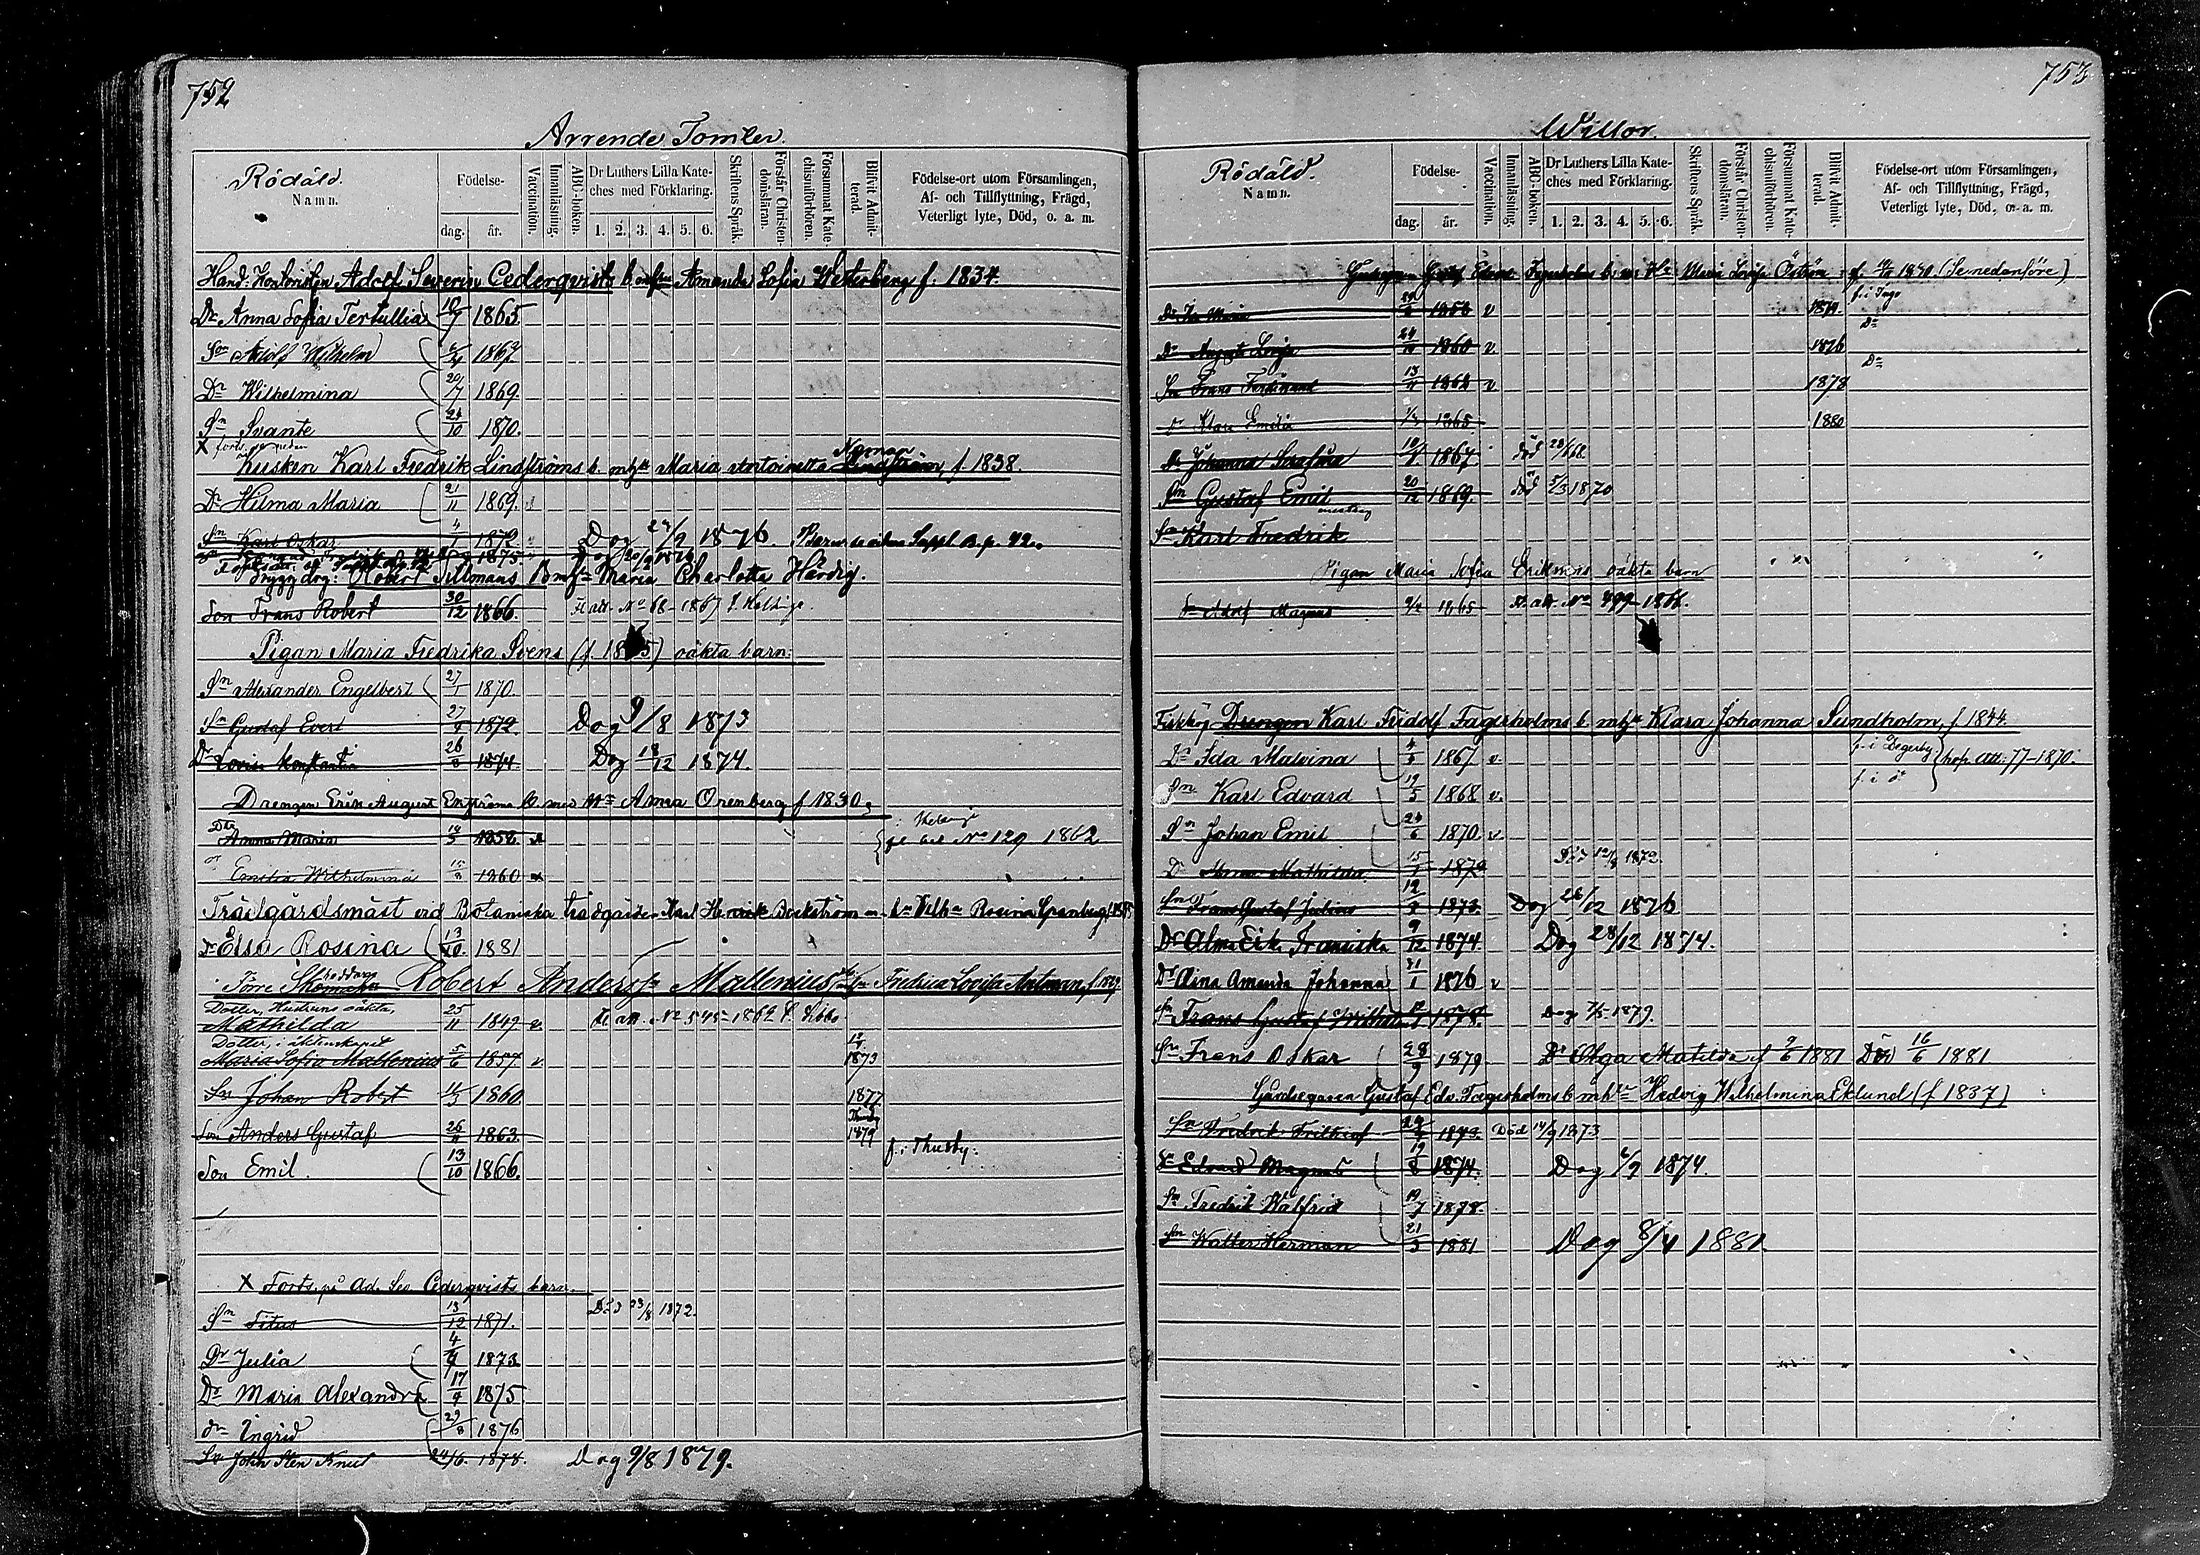 752
Arrende Tomter.
Rödäld.
Namn.
Födelse-
dag. år.
Vaccination.
Innanläsning.
ABC-boken.
Dr Luthers Lilla Kate-
ches med Förklaring.
1. 2. 3. 4. 5. 6.
Skriftens Språk.
Förstår Christen-
domsläran.
Försummat Kate-
chismiförhören.
Blifvit Admit-
terad.
Födelse-ort utom Församlingen,
Af- och Tillflyttning, Frägd,
Veterligt lyte, Död, o. a. m.
Hand. Kontoristen Adolf Severin Cederqvists b. m/hn Amanda Sofia Westerberg f. 1834.
Dr Anna Sofia Tertullia 10/7 1865
Son Adolf Wilhelm 1867
Dr Wilhelmina 20/7 1869.
Sn Svante 24/10 1870.
x forts. se nedan
Kusken Karl Fredrik Lindströms b. mhn Maria Antoinetta Lindström, f. 1838.
Nyman
Dr Hilma Maria 21/11 1869. v
Sn Karl Oskar 4/1 1872 Dog 24/9 1876. Suppl. B. p. 42.
1875
Robert Tillmans b mhn Maria Charlotta Härdig.
Son Frans Robert 30/12 1866 Fl. att. No 68-1867 f. Helsinge
Pigan Maria Fredrika Svens (f. 18 5) oäkta barn:
Sn Alexander Engelbert 27/1 1870
Sn Gustaf Evert 27/4 1872 Dog 9/8 1873
Dr Lovisa Konstantia 26/8 1874 Dog 18/12 1874.
Drengen Erik August Engströms b. med Hn Anna Orenberg f 1830.
Dtr Anna Maria 1858 v
No 129 1862
Emilia Wilhelmina 1860 v
Trädgårdsmäst vid Botaniska trädgården Karl Henrik Beckström m. Rosina Granberg
Dr Elsa Rosina 13/10. 1881
Förre Skoddare Robert Andersn Mallenius Fredrica Lovisa Antman,
Dotter, Hustruns oäkta,
Mathilda 25/11 1849 v. Fl att. No 545-1862 f. Sibbo
Dotter, i äktenskapet
Maria Sofia Mallenius 5/6 1857 v. 1873
Sn Johan Robert 1860 1877
Son Anders Gustaf 26/11 1863. 1879
f. i Thusby.
Son Emil. 13/10 1866.
X Forts. på Ad. Sev. Cederqvists barn.
Sn Titus 13/12 1871. Död 23/8 1872.
Dr Julia 1873
Dr Maria Alexandra 17/4 1875
Dr Ingrid 29/8 1876
Sn John Sten Knut 24/6 1878. Dog 9/8 1879.
753
Willor.
Rödäld.
Namn.
Födelse-
dag. år.
Vaccination.
Innanläsning.
ABC-boken.
Dr Luthers Lilla Kate-
ches med Förklaring.
1. 2. 3. 4. 5. 6.
Skriftens Språk.
Förstår Christen-
domsläran.
Försummat Kate-
chismiförhören.
Blifvit Admit-
terad.
Födelse-ort utom Församlingen,
Af- och Tillflyttning, Frägd,
Veterligt lyte, Död, o. a. m.
Fagerholms b. m Hn Maria Lovisa Öström f. 1840. (Se nedanföre)
Maria v 1879. f. i Ingo
Dr Augusta Lovisa 1860 v. 1876 Do
Sn Frans Ferdinand 13/11 1862 v 1878 Do
Dr Klara Emilia 1865 1880
Dr Johanna Serafina 1867. död
Sn Gustaf Emil 20/12 1869. död 5/3 1870
Sn Karl Fredrik
Pigan Maria Sofia Eriksons oäkta barn
Sn Adolf Magnus 9/2 1865 Fl. att. No 499-1866.
Drengen Karl Fridolf Fagerholms b. mhn Klara Johanna Sundholm, f. 1844
Dr Ida Malvina 1867 v. f. i Degerby
hop. att: 77-1870.
Sn Karl Edvard 19/5 1868 v. f. i do
Sn Johan Emil 24/6 1870 v
Dr Mathilda 15/1 1872 Död 1872.
Sn Frans Gustaf Julius 1873. Dog 26/12 1876
Dr Alma Franciska 9/12 1874. Dog 28/12 1874.
Dr Aina Amanda Johanna 31/1 1876 v
Sn Frans Gustaf 1878. Dog 7/5 1879.
Sn Frans Oskar 28/9 1879 Dr Olga Matilda f 9/6 1881 Död 16/6 1881
Gårdsegaren Gustaf Edv. Fagerholms b mhn Hedvig Wilhelmina Eklund (f 1837)
Sn Fredrik Frithiof 1873. Död 14/9 1873
Sn Edvard Magnus 19/8 1874. Dog 6/9 1874.
Sn Fredrik Walfrid 19/7 1878.
Sn Walter Herman 21/3 1881 Dog 8/4 1881